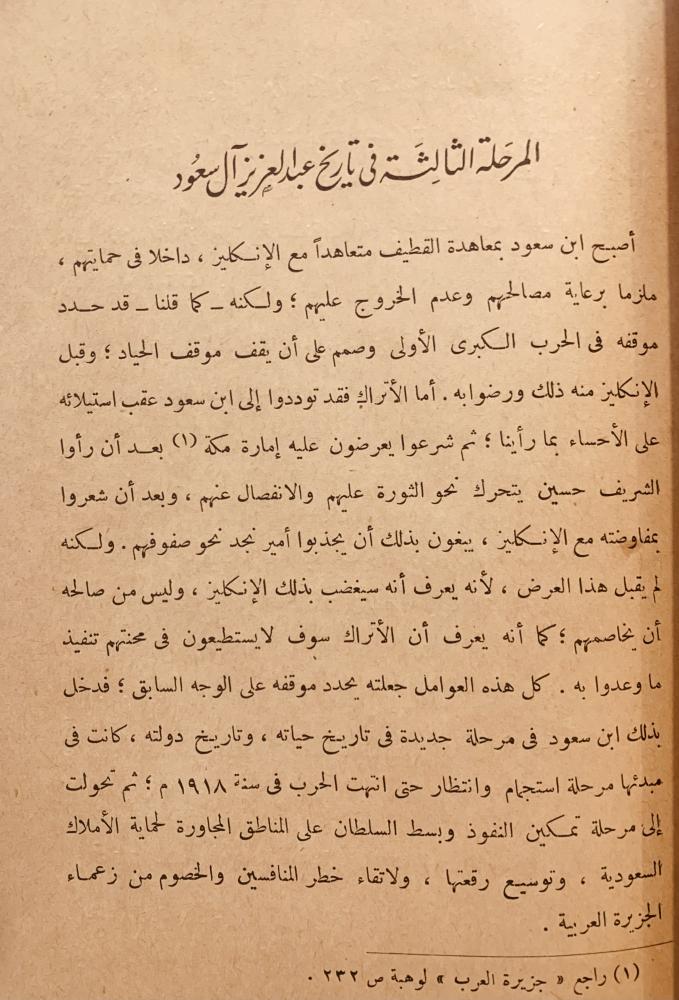 المرحَلة الثالِثَة فى تاريخ عبد العزيز آل سعُود
أصبح ابن سعود بمعاهدة القطيف متعاهداً مع الإنكليز ، داخلا فى حمايتهم ،
ملزما برعاية مصالحهم وعدم الخروج عليهم ؛ ولكنه ـ كما قلنا ـ قد حدد
موقفه فى الحرب الكبرى الأولى وصمم على أن يقف موقف الحياد ؛ وقبل
الإنكليز منه ذلك ورضوا به . أما الأتراك فقد توددوا إلى ابن سعود عقب استيلائه
على الأحساء بما رأينا ؛ ثم شرعوا يعرضون عليه إمارة مكة (١) بعد أن رأوا
الشريف حسين يتحرك نحو الثورة عليهم والانفصال عنهم ، وبعد أن شعروا
بمفاوضته مع الإنكليز ، يبغون بذلك أن يجذبوا أمير نجد نحو صفوفهم . ولكنه
لم يقبل هذا العرض ، لأنه يعرف أنه سيغضب بذلك الإنكليز ، وليس من صالحه
أن يخاصمهم ؛ كما أنه يعرف أن الأتراك سوف لايستطيعون فى محنتهم تنفيذ
ما وعدوا به . كل هذه العوامل جعلته يحدد موقفه على الوجه السابق ؛ فدخل
بذلك ابن سعود فى مرحلة جديدة فى تاريخ حياته ، وتاريخ دولته ، كانت فى
مبدئها مرحلة استجمام وانتظار حتى انتهت الحرب فى سنة ١٩١٨ م ؛ ثم تحولت
إلى مرحلة تمكين النفوذ وبسط السلطان على المناطق المجاورة لحماية الأملاك
السعودية ، وتوسيع رقعتها ، ولاتقاء خطر المنافسين والخصوم من زعماء
الجزيرة العربية .
(١) راجع « جزيرة العرب » لوهبة ص ٢٣٢ .